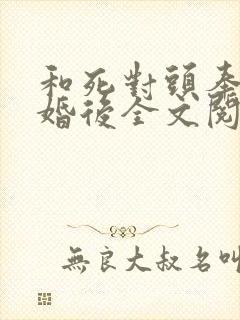 和死對頭奉
婚後全文閱
無良大叔名叫